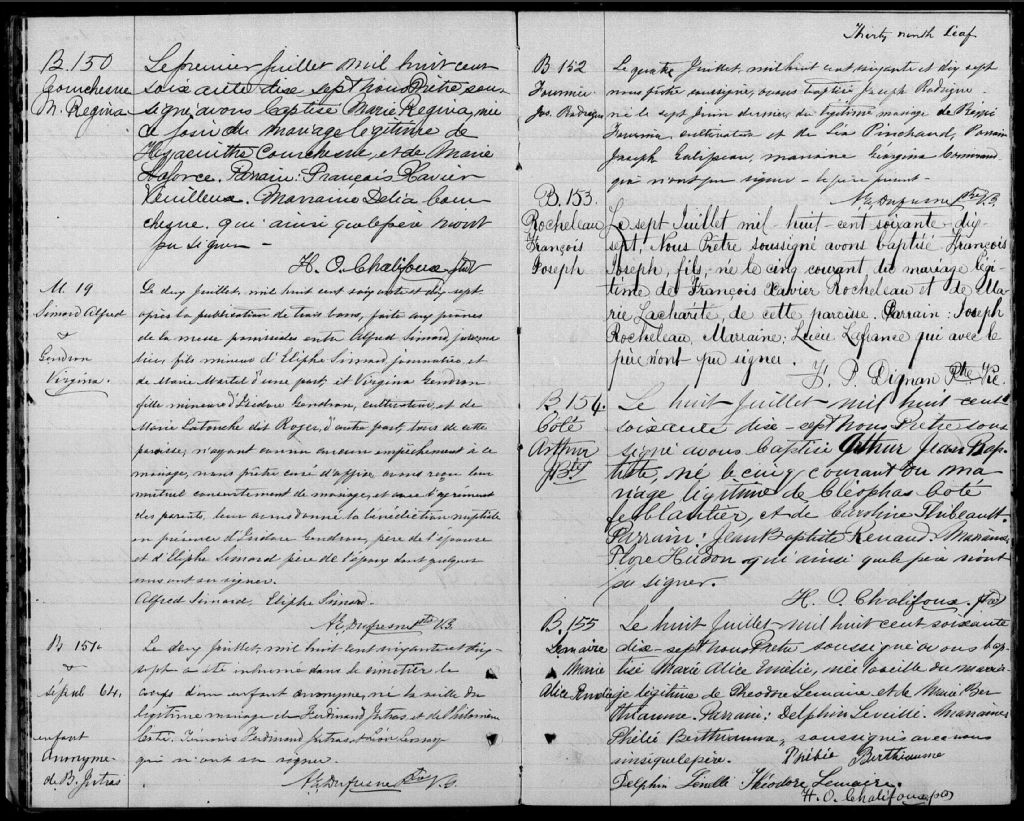 B. 150
Courchesne
M. Regina
Le premier Juillet mil huit cent
soixante dix sept Nous Prêtre sous-
signé avons baptisé Marie Regina, née
ce jour du mariage légitime de
Hyacinthe Courchesne, et de Marie
Laforce. Parrain: François Xavier
Veuilleux. Marraine Delia Cour
chesne. qui ainsi que le père n'ont
pu signer —
H. O. Chalifoux ptre
M. 19
Simard Alfred
&
Gendron
Virginia.
Le deux Juillet, mil huit cent soixante et dix sept
après la publication de trois bans, faite aux prônes
de la messe paroissiale entre Alfred Simard journa
lier, fils mineur d'Eliphe Simard journalier, et
de Marie Martel d'une part; et Virginia Gendron
fille mineure d'Isidore Gendron, cultivateur, et de
Marie Latouche dit Roger, d'autre part, tous de cette
paroisse; n'ayant connu aucun empêchement à ce
mariage, nous prêtre curé d'office avons reçu leur
mutuel consentement de mariage, et avec l'agrément
des parents, leur avons donné la bénédiction nuptiale
en présence d'Isidore Gendron, père de l'épouse
et d'Eliphe Simard père de l'époux dont quelques
uns ont su signer.
Alfred Simard, Eliphe Simard.
A.E. Dufresne Ptre V.G.
B 151
&
Sépul 64.
enfant
Anonyme
de B. Jutras
Le deux Juillet, mil huit cent soixante et dix
sept a été inhumé dans le cimetière le
corps d'un enfant anonyme, né la veille du
légitime mariage de Ferdinand Jutras et de Philomène
Témoins Ferdinand Jutras, et
qui n'ont su signer.
A.E. Dufresne Ptre V.G.
Thirty ninth leaf
B 152
Fournier
Jos. Rodrigue
Le quatre Juillet, mil huit cent soixante et dix sept
nous prêtre soussigné, avons baptisé Joseph Rodrigue
né le sept Juin dernier, du légitime mariage de
Fournier, cultivateur et de Lia Pinchaud, Parrain
Joseph Galipeau, marraine Géorgina
qui n'ont pu signer — le père présent —
A.E. Dufresne Ptre V.G.
B. 153.
Rocheleau
François
Joseph
Le sept Juillet mil huit-cent soixante-dix-
sept, Nous Prêtre soussigné avons baptisé François
Joseph, fils, né le cinq courant, du mariage légi-
time de François Xavier Rocheleau et de Ma-
rie Lacharité, de cette paroisse. Parrain: Joseph
Rocheleau, Marraine; Lucie Lafrance qui avec le
père n'ont pu signer.
F. P. Dignan Ptre Vic.
B 154.
Côté
Arthur
J. Bte
Le huit Juillet mil huit cent
soixante dix-sept Nous Prêtre sous
signé avons baptisé Arthur Jean Bap
tiste, né le cinq courant du ma
riage légitime de Cléophas Coté
ferblantier, et de Caroline Thibeault.
Parrain: Jean Baptiste Renaud. Marraine,
Flore Hudon qui ainsi que le père n'ont
pu signer.
H. O. Chalifoux, ptre
B. 155
Lemaire
Marie
Alice
Le huit Juillet mil huit cent soixante
dix-sept Nous Prêtre soussigné avons bap
tisé Marie Alice Emélie, née la veille du mari
age légitime de Théodore Lemaire et de Marie Ber
thiaume. Parrain: Delphin Leveillé. Marraine
Philié Berthiaume, soussignés avec nous
ainsi que le père. Philié Berthiaume
Delphin Théodore Lemaire.
H. O. Chalifoux, ptre